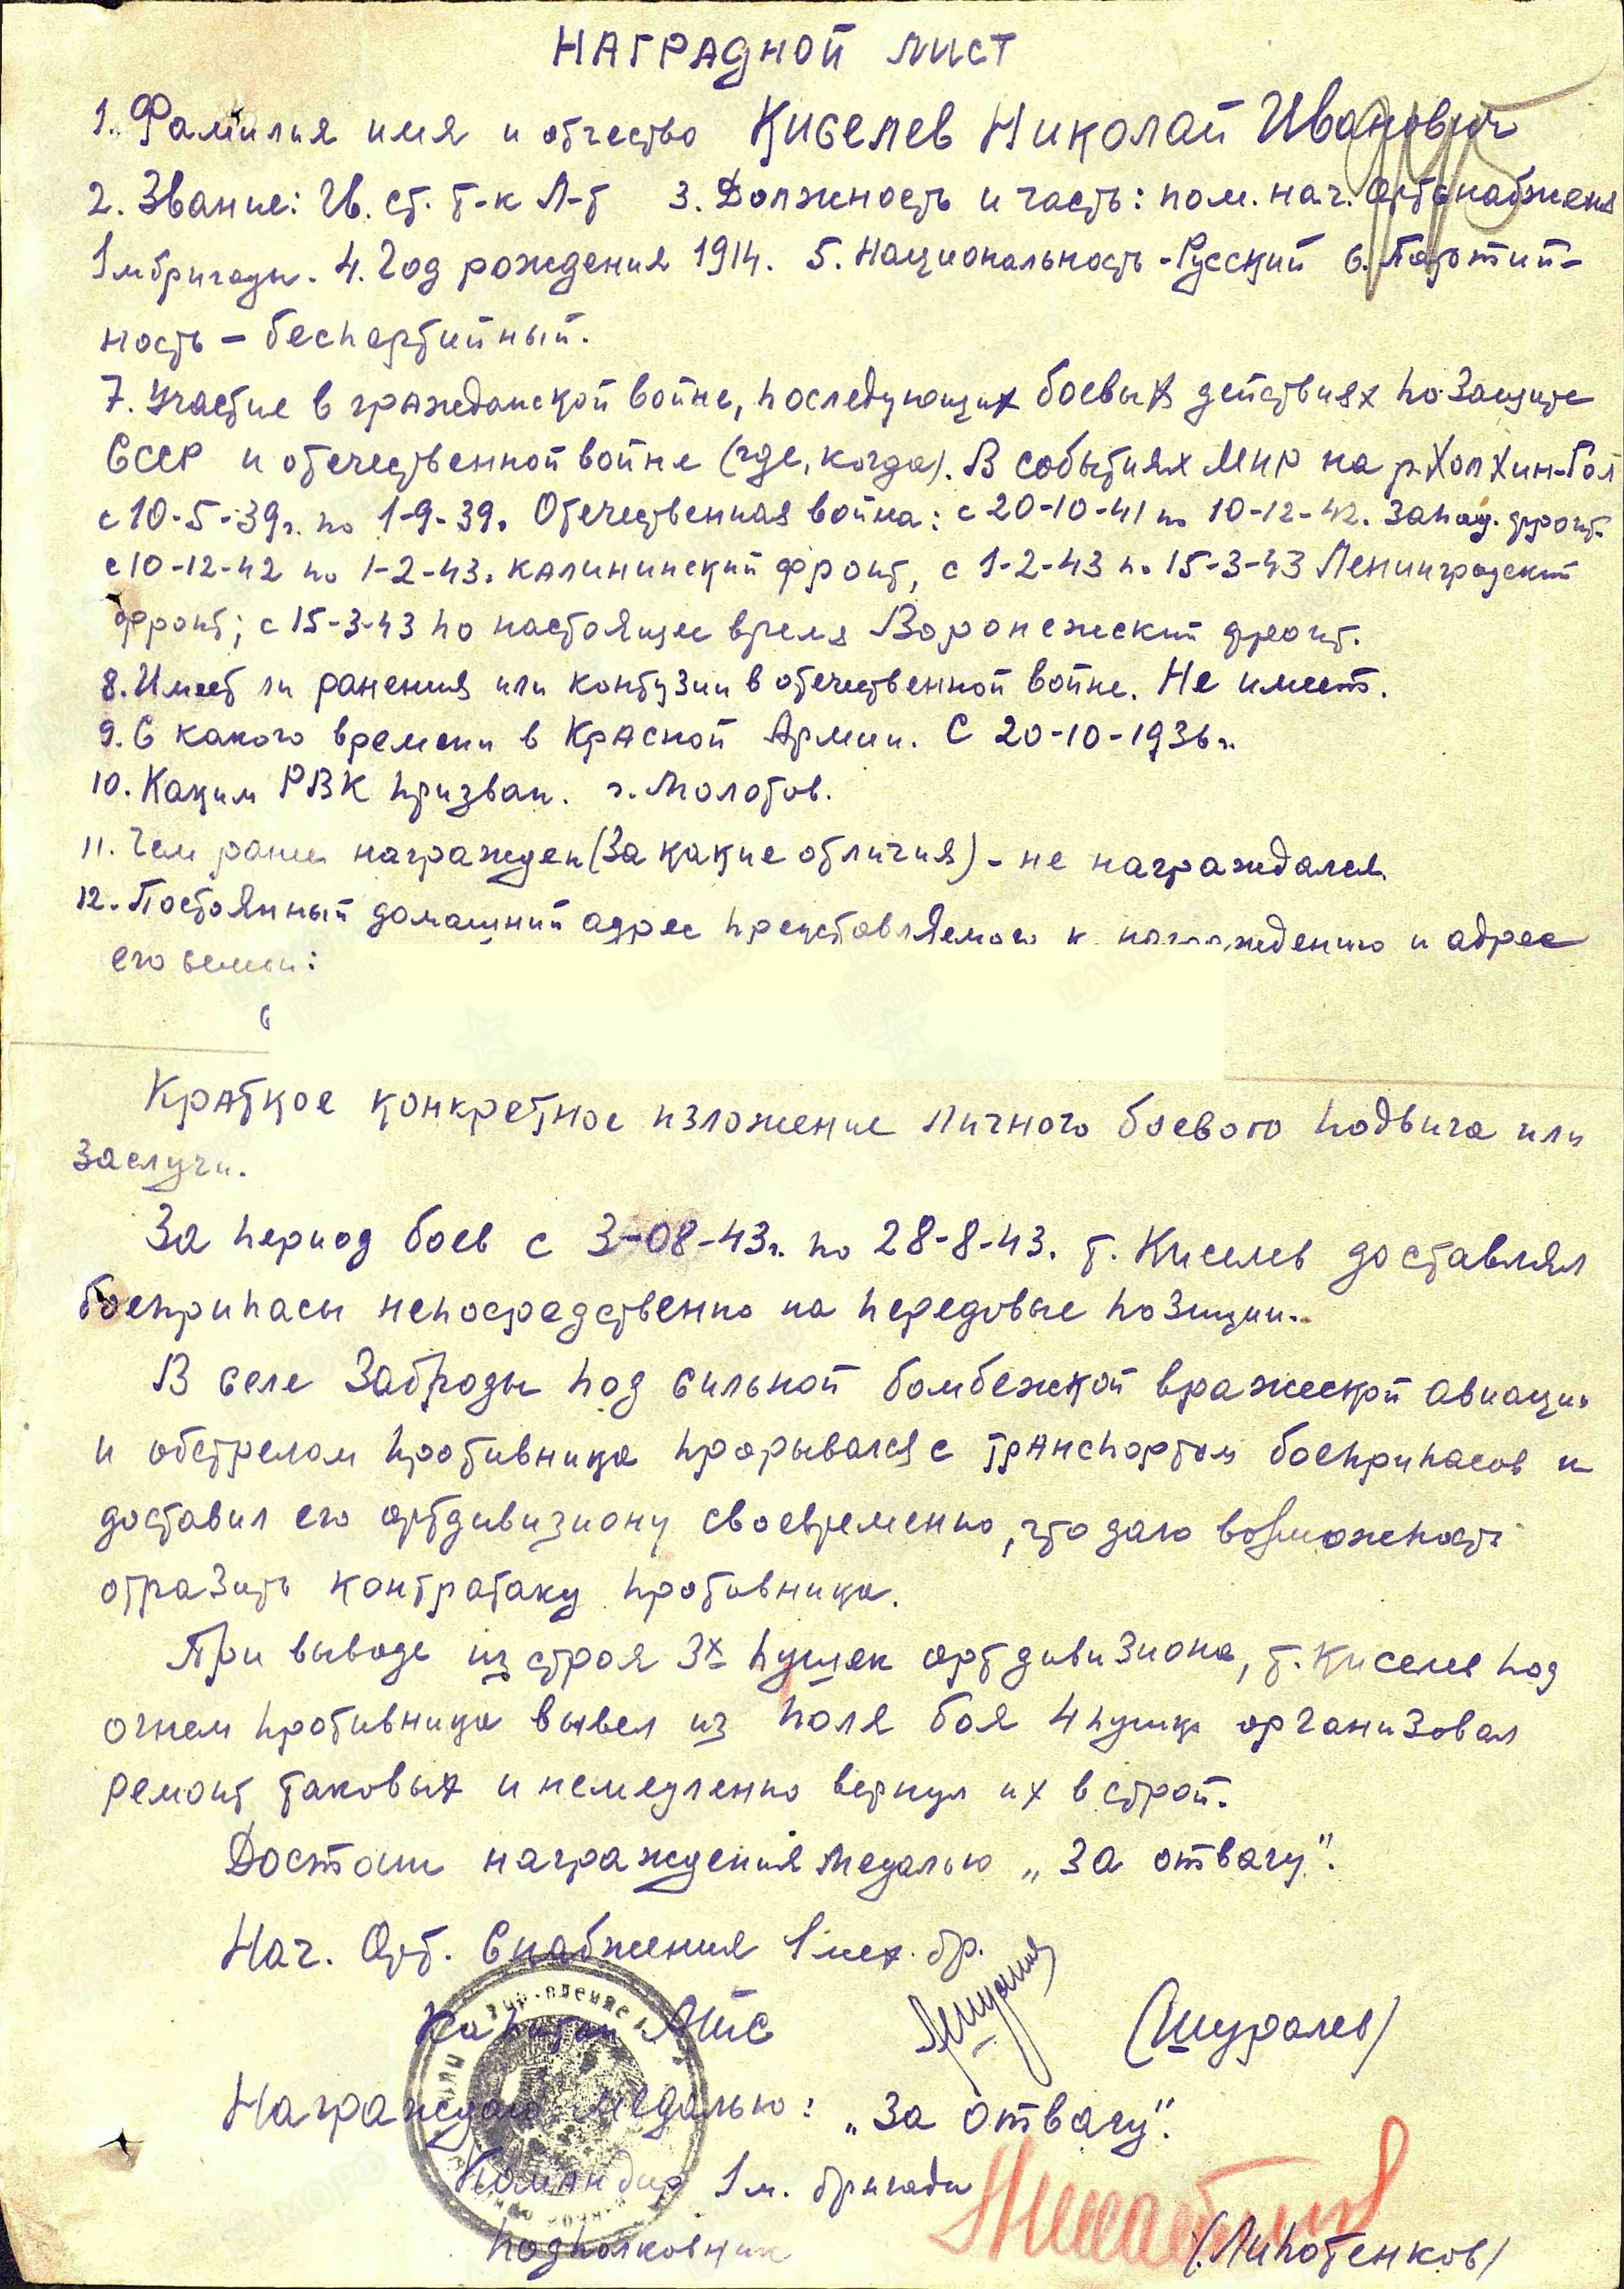 НАГРАДНОЙ ЛИСТ
1. Фамилия имя и отчество Киселев Николай Иванович
2. Звание: Гв. ст. т-к Л-т 3. Должность и часть: пом. нач. артснабжения
1 мбригады. 4. Год рождения 1914. 5. Национальность - Русский 6. Партий-
ность - беспартийный.
7. Участие в гражданской войне, последующих боевых действиях по защите
СССР и отечественной войне (где, когда). В событиях МНР на р. Холхин-Гол
с 10-5-39г. по 1-9-39. Отечественная война: с 20-10-41 по 10-12-42. Запад. фронт.
с 10-12-42 по 1-2-43. калининский фронт, с 1-2-43 п. 15-3-43 Ленинградский
фронт; с 15-3-43 по настоящее время Воронежский фронт.
8. Имеет ли ранения или контузии в отечественной войне. Не имеет.
9. С какого времени в Красной Армии. С 20-10-1936г.
10. Каким РВК призван. г. Молотов.
11. Чем ранее награжден (За какие отличия) - не награждался.
12. Постоянный домашний адрес представляемого к награждению и адрес
его семьи:
Краткое конкретное изложение личного боевого подвига или
заслуги.
За период боев с 3-08-43г. по 28-8-43. т. Киселев доставлял
боеприпасы непосредственно на передовые позиции.
В селе Заброды под сильной бомбежкой вражеской авиации
и обстрелом противника прорывался с транспортом боеприпасов и
доставил его артдивизиону своевременно, что дало возможность
отразить контратаку противника.
При выводе из строя 3х пушек артдивизиона, т. Киселев под
огнем противника вывел из поля боя 4 пушки организовал
ремонт таковых и немедленно вернул их в строй.
Достоин награждения медалью „За отвагу".
Нач. Арт. Снабжения 1 мех. бр.
Капитан АТС (Шуралев)
Награждаю медалью: „За отвагу".
Командир 1 м. бригады
подполковник (Липотенков)